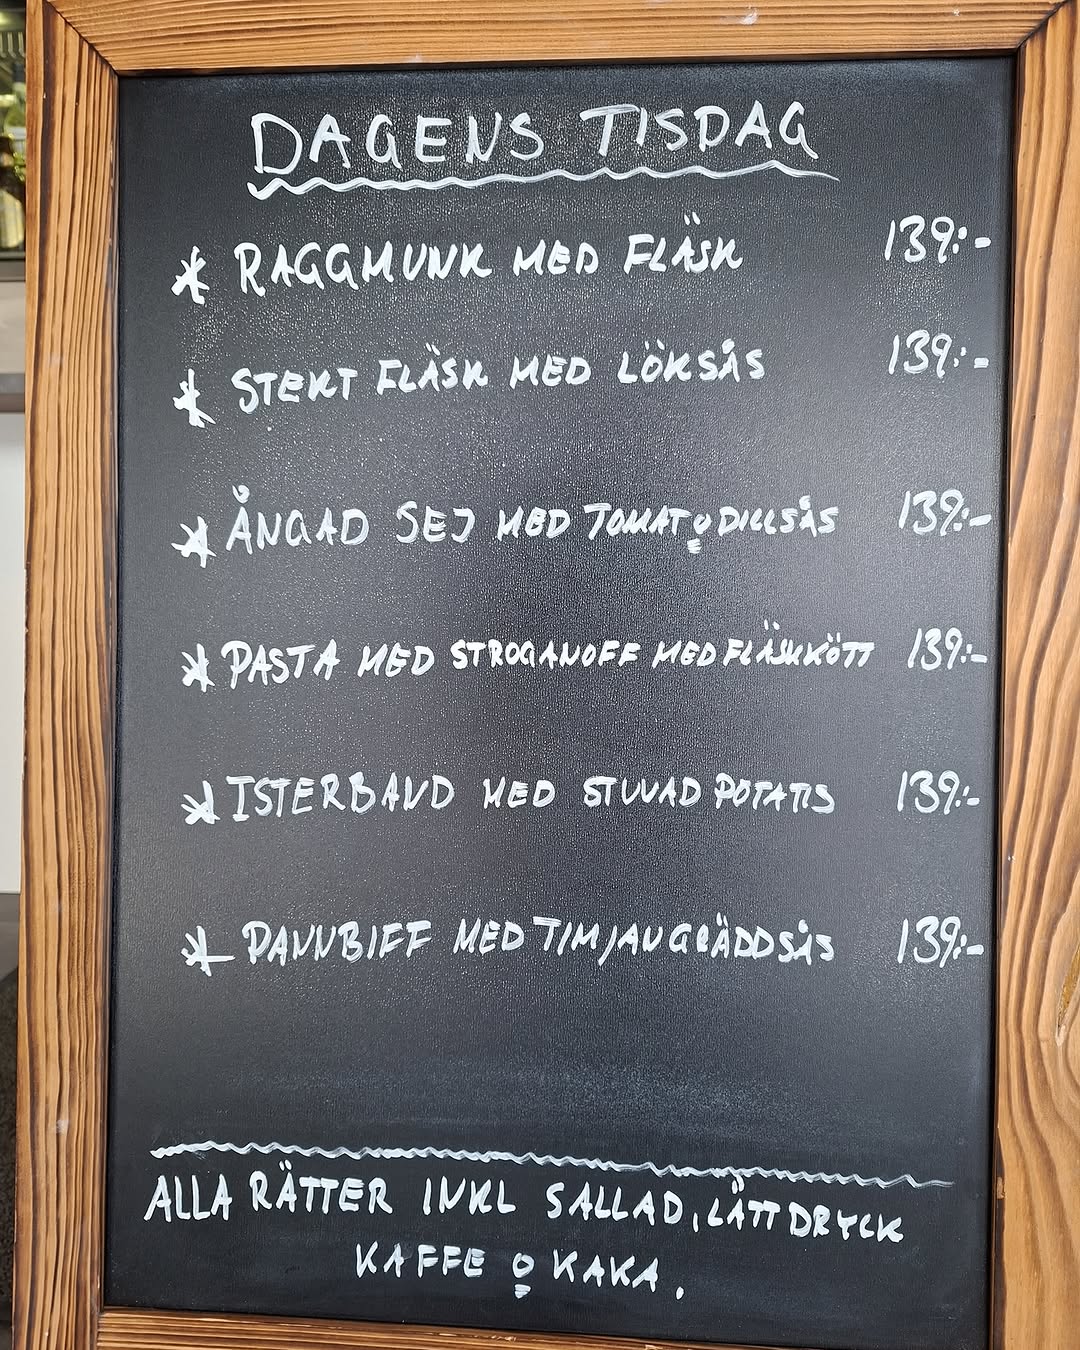 DAGENS TISDAG
* RAGGMUNK MED FLÄSK 139:-
* STEKT FLÄSK MED LÖKSÅS 139:-
* ÅNGAD SEJ MED TOMAT O DILLSÅS 139:-
* PASTA MED STROGANOFF MED FLÄSKKÖTT 139:-
* ISTERBAND MED STUVAD POTATIS 139:-
* PANNBIFF MED TIMJANGRÄDDSÅS 139:-
ALLA RÄTTER INKL SALLAD, LÄTTDRYCK
KAFFE O KAKA.